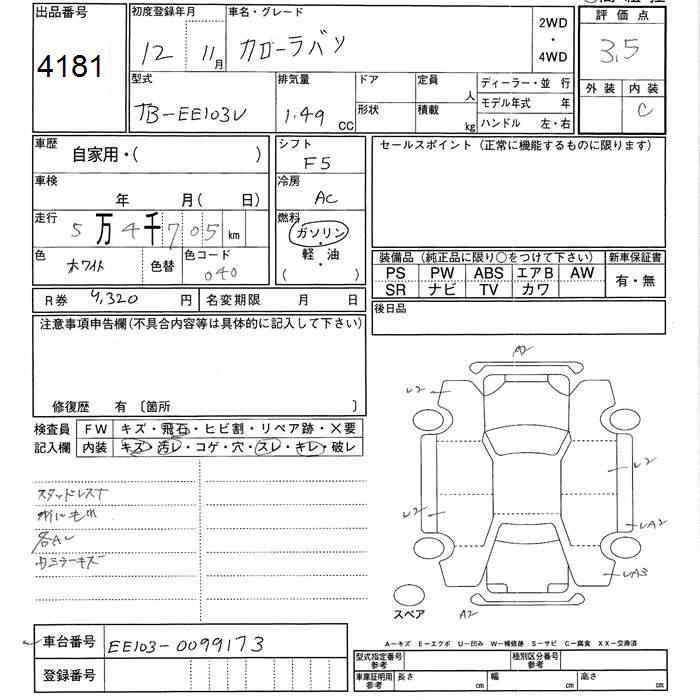 出品番号 4181
初度登録年月 12 11月
車名・グレード カローラバン
2WD・4WD
評価点 3.5
外装 内装 C
型式 TB-EE103V
排気量 1.49 CC
ドア 形状
定員 人
積載 kg
ディーラー・並 行
モデル年式 年
ハンドル 左・右
車歴 自家用・( )
シフト F5
セールスポイント(正常に機能するものに限ります)
車検 年 月( 日)
冷房 AC
走行 5万4千705km
燃料 ガソリン・軽・油 ( )
色 ホワイト 色替 色コード 040
装備品(純正品に限り○をつけて下さい) 新車保証書
PS PW ABS エアB AW 有・無
SR ナビ TV カワ
R券 9,320 円 名変期限 月 日
後日品
注意事項申告欄(不具合内容等は具体的に記入して下さい)
修復歴 有 〔箇所 〕
検査員 FW キズ・飛石・ヒビ割・リペア跡・×要
記入欄 内装 キズ・汚レ・コゲ・穴・スレ・キレ・破レ
スタッドレス
A2
A2
スペア
A−キズ E−エクボ U−凹み W−補修跡 S−サビ C−腐食 XX−交換済
車台番号 EE103-0099173
登録番号
型式指定番号 参考 種別区分番号 参考
車庫証明用 参考 長さ cm 幅 cm 高さ cm